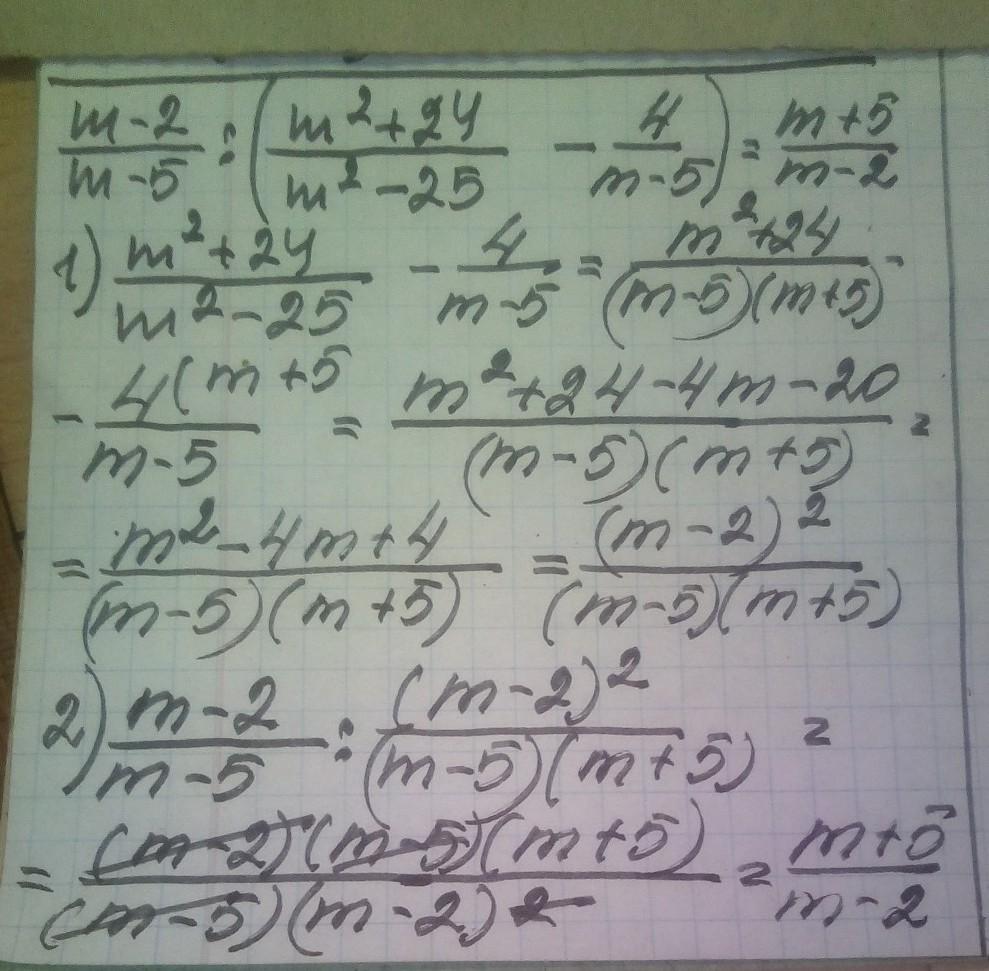 (m-2)/(m-5) : ((m²+24)/(m²-25) - 4/(m-5)) = (m+5)/(m-2)
1) (m²+24)/(m²-25) - 4/(m-5) = (m²+24)/((m-5)(m+5)) -
- (4(m+5)/(m-5) = (m²+24-4m-20)/((m-5)(m+5)) =
= (m²-4m+4)/((m-5)(m+5)) = (m-2)²/((m-5)(m+5))
2) (m-2)/(m-5) : (m-2)²/((m-5)(m+5)) =
= ((m-2)(m-5)(m+5))/((m-5)(m-2)2) = (m+5)/(m-2)